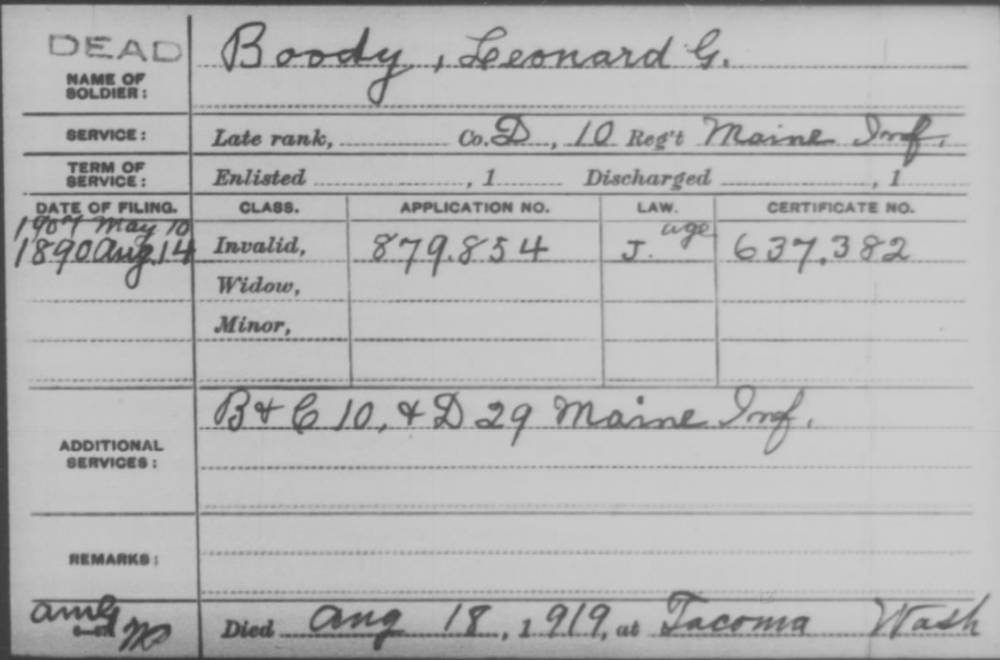 DEAD
NAME OF SOLDIER: Boody, Leonard G.
SERVICE: Late rank, Co. D, 10 Reg't Maine Inf.
TERM OF SERVICE: Enlisted , 1 Discharged , 1
DATE OF FILING. CLASS. APPLICATION NO. LAW. CERTIFICATE NO.
1907 May 10 age
1890 Aug. 14 Invalid, 879.854 J. 637.382
Widow,
Minor,
ADDITIONAL SERVICES: B & C 10, & D 29 Maine Inf.
REMARKS:
Died Aug 18, 1919, at Tacoma Wash